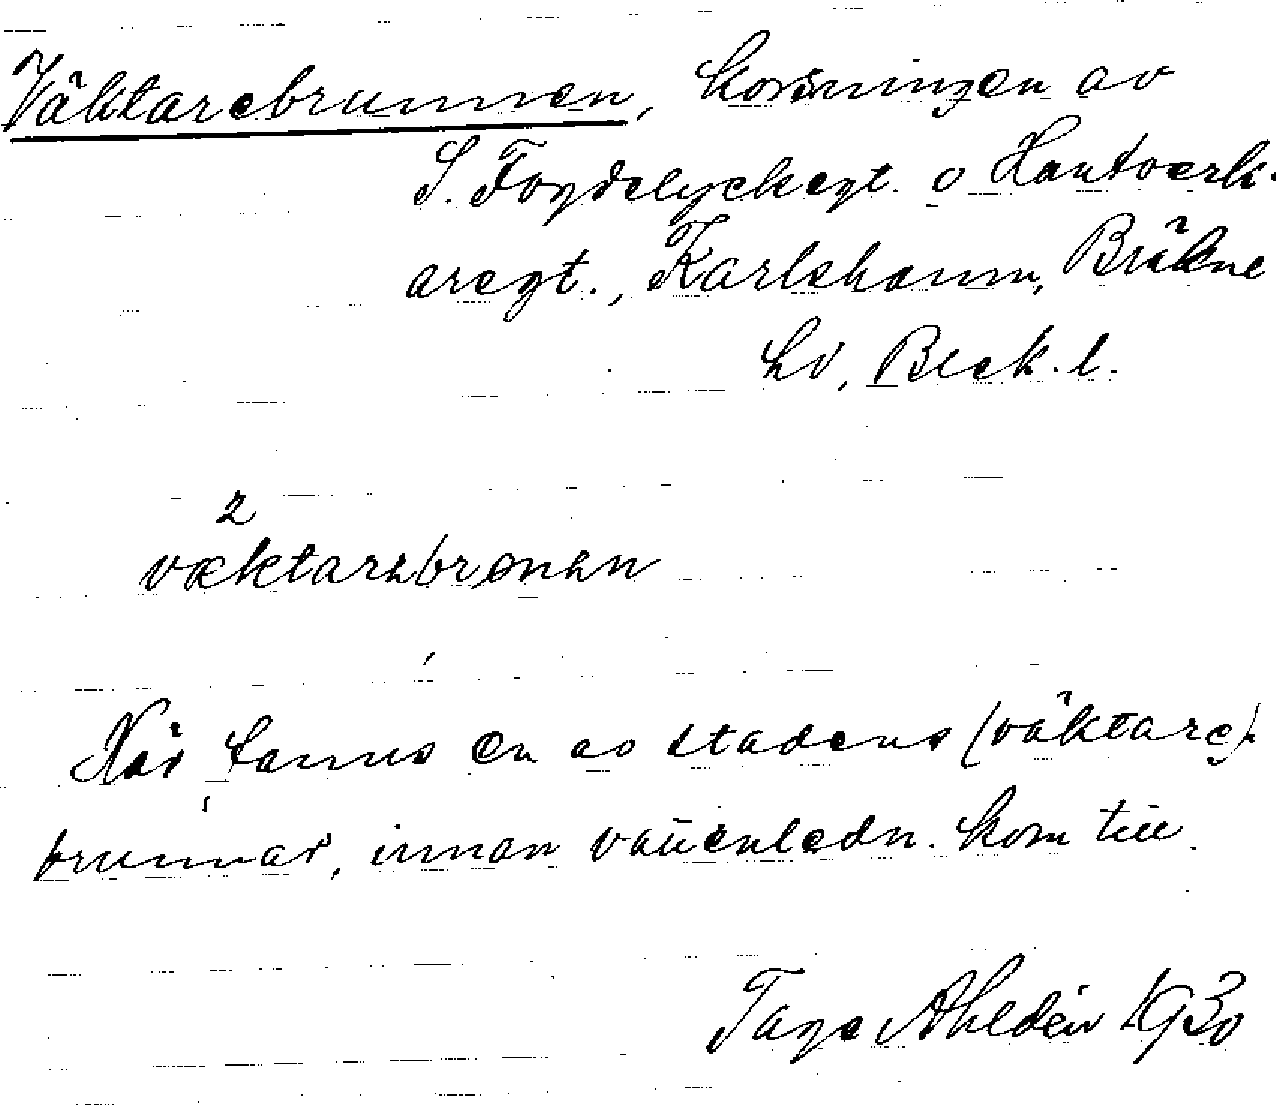 Väktarebrunnen, korsningen av
S. Fogdelyckegt. o Hantverk-
aregt., Karlshamn, Bräkne
hd, Blek. l.
2
væktarəbrɵnən
Här fanns en av stadens (väktare)-
brunnar, innan vattenledn. kom till.
Tage Ahldén 1930